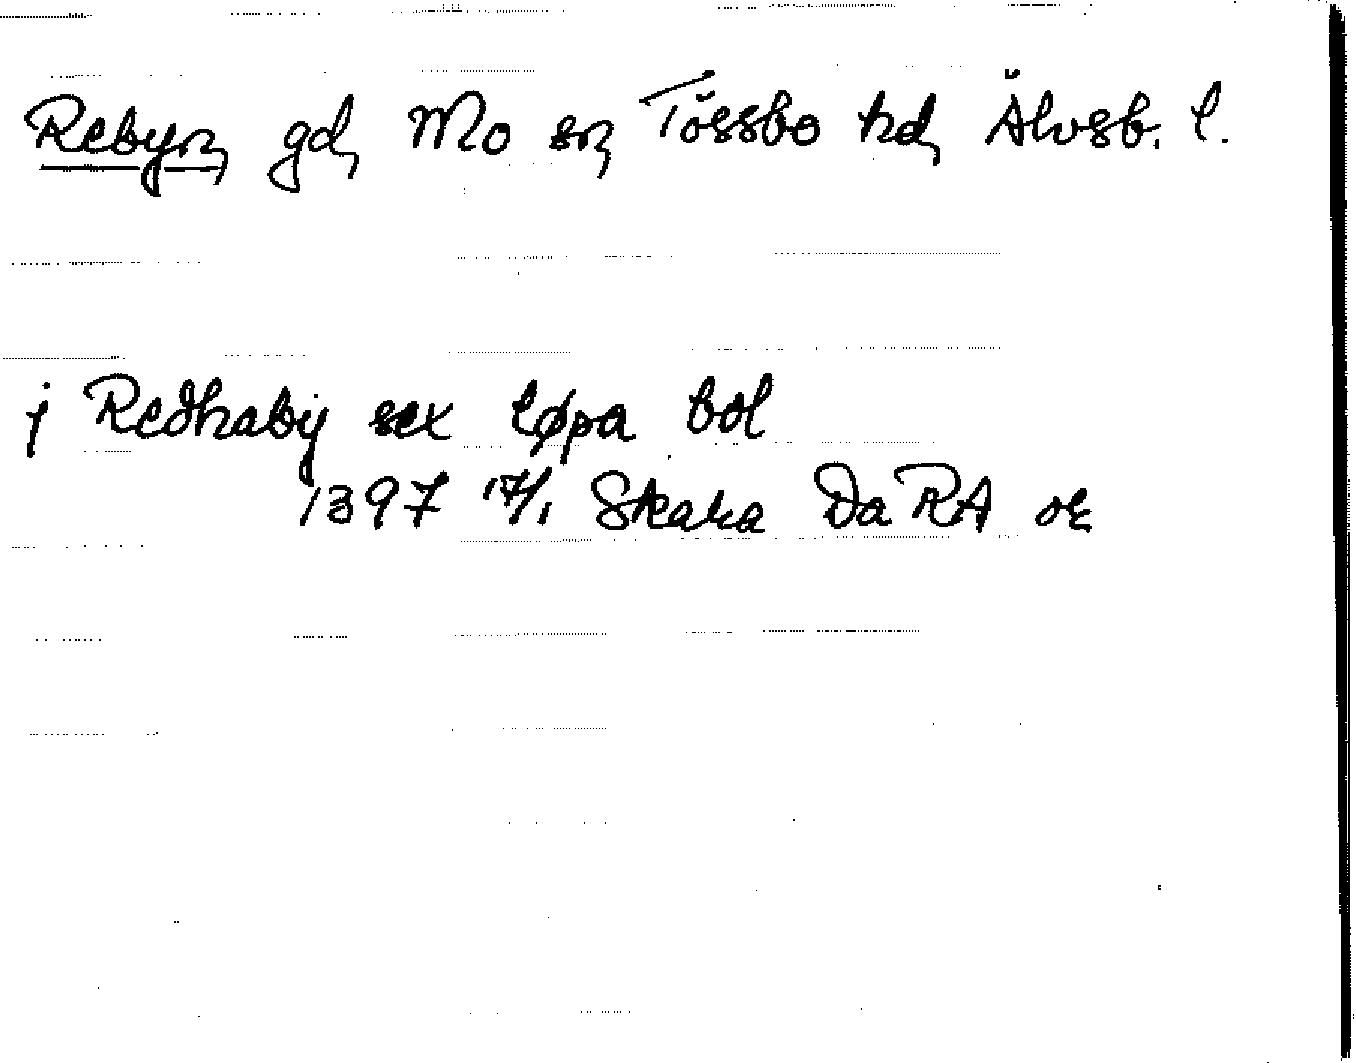 Rebyn, gd, Mo sn, Tössbo hd, Älvsb. l.
j Redhaby sex løpa bol
1397 17/1 Skara Da RA or